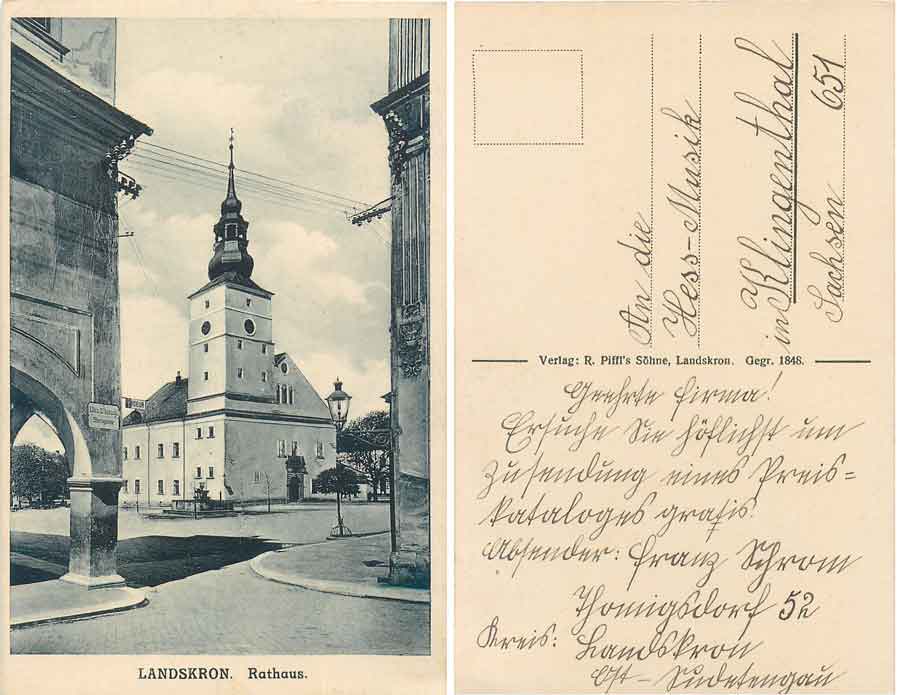 LANDSKRON. Rathaus.
An die
Hess-Musik
in Klingenthal
Sachsen 651
Verlag: R. Piffl's Söhne, Landskron. Gegr. 1848.
Geehrte Firma!
Ersuche Sie höflichst um
Zusendung eines Preis=
kataloges gratis.
Absender: Franz Schrom
Thomigsdorf 52
Kreis: Landskron
Ost-Sudetengau